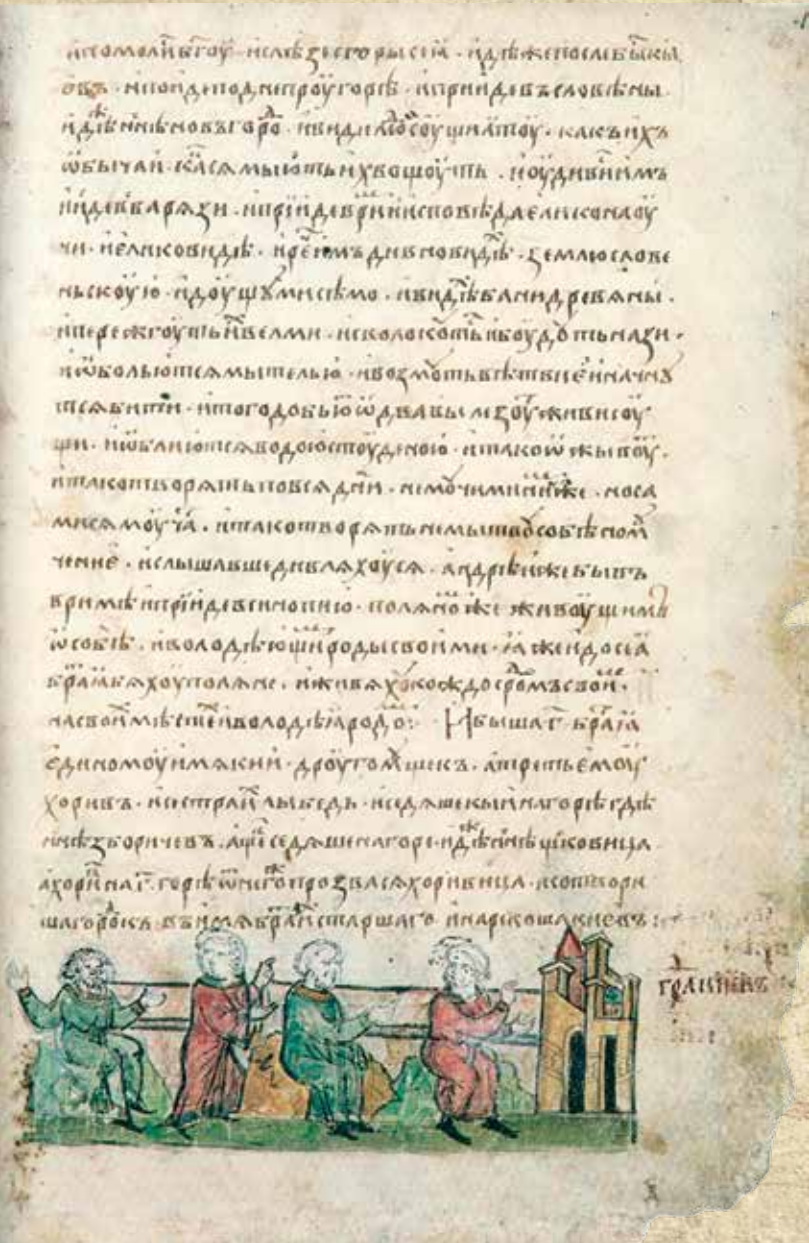 и помоли бг҃оу · и слѣзъ с горы сеѧ · идѣже послѣ бы́ кы
евъ · и поиде по днепроу горѣ · и приидє въ словѣны
идѣ нн҃ѣ новъгоро҃ · и видѣ лю҃ соущаѧ тоу · какъ ихъ
ѡбычаи · ка҃ сѧ мыють и хвощоуть · и оудивисѧ имъ
и иде въ варѧзи · и прїиде в ри҃ и исповѣда єлико наоу
чи · и єлико видѣ · и ре҃ имъ дивно видѣ · землю слове
ньскоую · идоущꙋ ми сѣмо · и видѣ бани древѧны ·
и пережгоуть ѧ҃ велми · и сволокоуть и боудоуть нази ·
и ѡбольютсѧ мытелью · и возмоуть вѣтвиє и начнꙋ
тсѧ бити · и того добью ѡдва вылезоу҃ живи соу
щи · и ѡблиютсѧ водою стоуденою · и тако ѡживоу҃ ·
и тако творѧть по всѧ дн҃и · не мꙋчими никы҃же · но са
ми сѧ моуча҃ · и тако творѧть не мытвоу собѣ но м҃
чение · и слышавше дивлѧхоусѧ · андрѣи же бывъ
в римѣ и прїиде в синопию · полѧно҃ же живоущимъ
ѡ собѣ · и володѣющи҃ роды своими · иже и до сеѧ
бра҃ѧ бѧхоу полѧне · и живѧхꙋ кождо с ро҃мъ свои҃ ·
на свои҃ мѣстѣ҃ и володѣѧ родо҃ : И быша г҃ · бра҃ѧ
єдиномоу имѧ кии · дроуго҃ щекъ · а третьємоу
хоривъ · и сестра и҃ лыбедь · и седѧше кыи на горѣ гдѣ
нн҃ѣ зборичевъ · а ще҃ седѧше на горе · идѣ҃ нн҃ѣ щековица
а хори҃ на г҃ горѣ ѿ него҃ прозвасѧ хоривица · и сотвори
ша горо҃къ въ имѧ бра҃ старшаго и нарекоша киевъ :
гра҃ киевъ